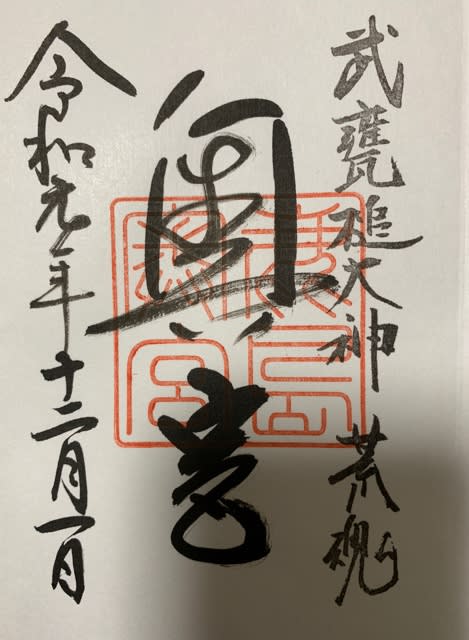 武甕槌大神 荒魂
奥宮
令和元年十二月一日